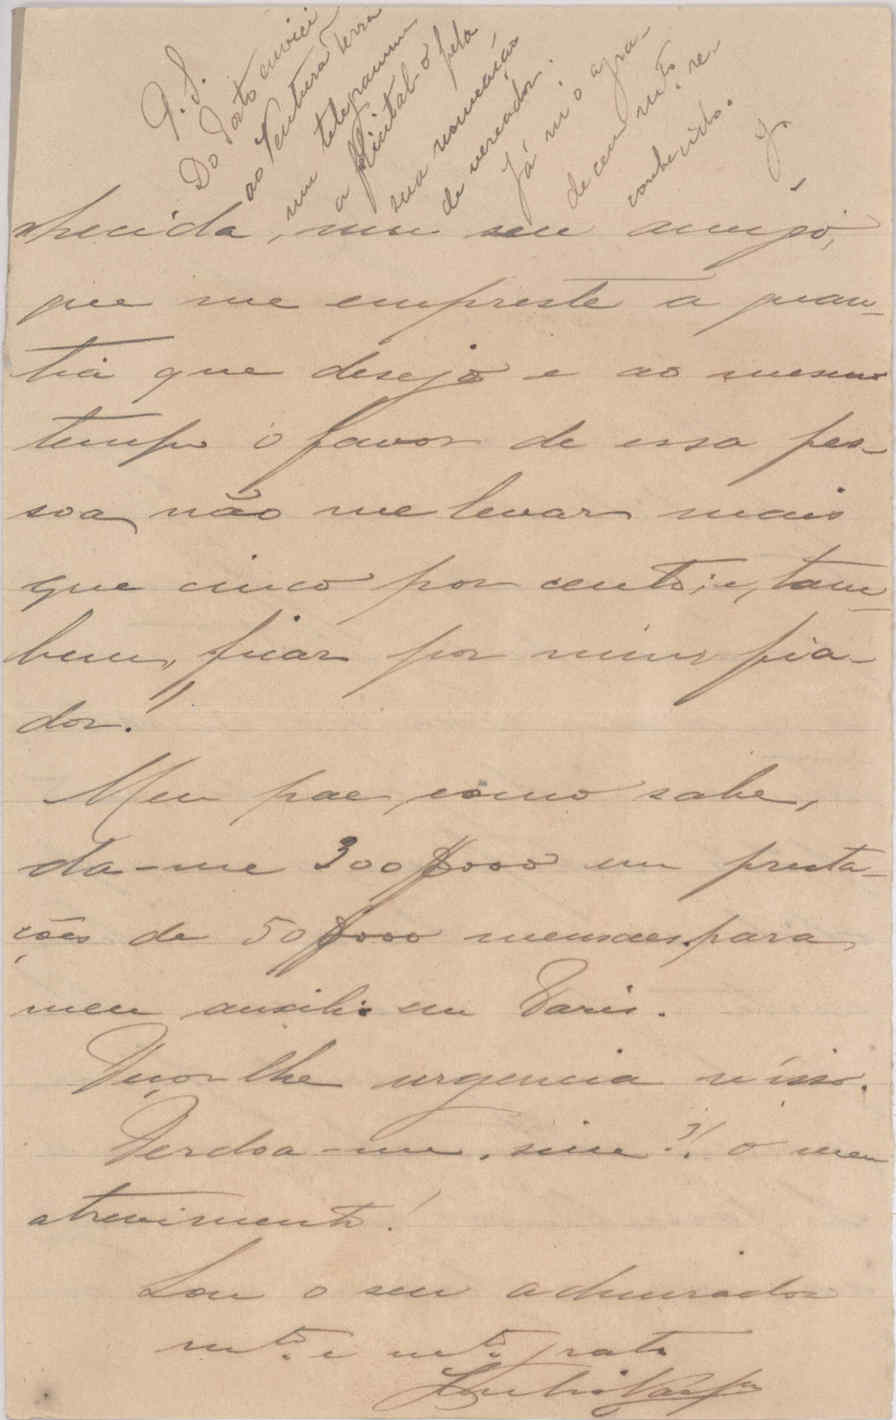 P.S.
Do Porto enviei
ao Ventura Terra
um telegramma
a felicital-o pela
sua nomeação
de vereador.
Já m'o agra-
deceu mto re-
conhecido.
nhecida, um seu amigo,
que me empreste a quan-
tia que desejo e ao mesmo
tempo o favor de essa pes-
soa não me levar mais
que cinco por cento; e, tam-
bem, ficar por meu fia-
dor!
Meu pae, como sabe,
da-me 300$000 em presta-
ções de 50$000 mensaes para
meu auxilio em Paris.
Peço-lhe urgencia n'isso.
Perdoa-me, sim?! o meu
atrevimento!
Sou o seu admirador
mto e mto grato